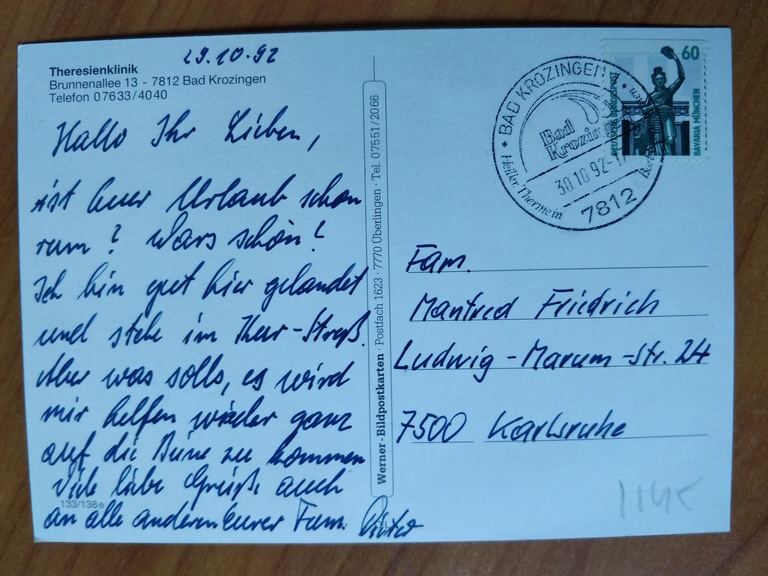 29.10.92
Theresienklinik
Brunnenallee 13 - 7812 Bad Krozingen
Telefon 07633/4040
Hallo Ihr Lieben,
ist Euer Urlaub schon
rum? Wars schön?
Ich bin gut hier gelandet
und stehe im Kur-Streß.
Aber was solls, es wird
mir helfen wieder ganz
auf die Beine zu kommen
Viele liebe Grüße auch
an alle anderen Eurer Fam.
133/138e
Werner-Bildpostkarten · Postfach 1623 · 7770 Überlingen · Tel. 07551/2066
BAD KROZINGEN
Bad
30.10.92
7812
60
DEUTSCHE BUNDESPOST
BAVARIA MÜNCHEN
Fam.
Manfred Friedrich
Ludwig-Marum-Str. 24
7500 Karlsruhe